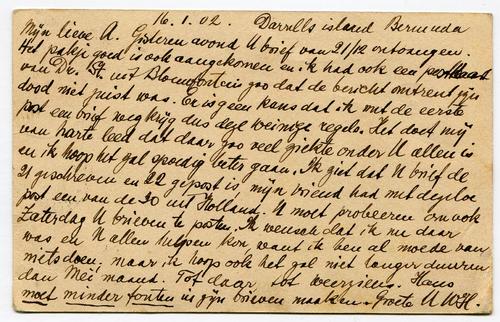 16.1.02. Darrells island Bermuda
Mijn lieve A. Gisteren avond U brief van 21/12 ontvangen.
Het pakje goed is ook aangekomen en ik had ook een
van Dr. uit Bloemfontein zoo dat de bericht omtrent zijn
dood niet juist was. Er is geen kans dat ik met de eerste
post een brief weg krijg dus deze weinige regels. Het doet mij
van harte leed dat daar zoo veel ziekte onder U allen is
en ik hoop het zal spoedig beter gaan. Ik zie dat U brief de
21 geschreven en 22 gepost is, mijn vriend had met dezelve
post een van de 20 uit Holland. U moet probeeren om ook
Zaterdag U brieven te posten. Ik wensch dat ik nu daar
was en U allen helpen kon want ik ben al moede van
niets doen. maar ik hoop ook het zal niet langer duuren
dan Mei maand. Tot daar, tot weerziens. Hans
moet minder fouten in zijn brieven maaken. Groete U WH.